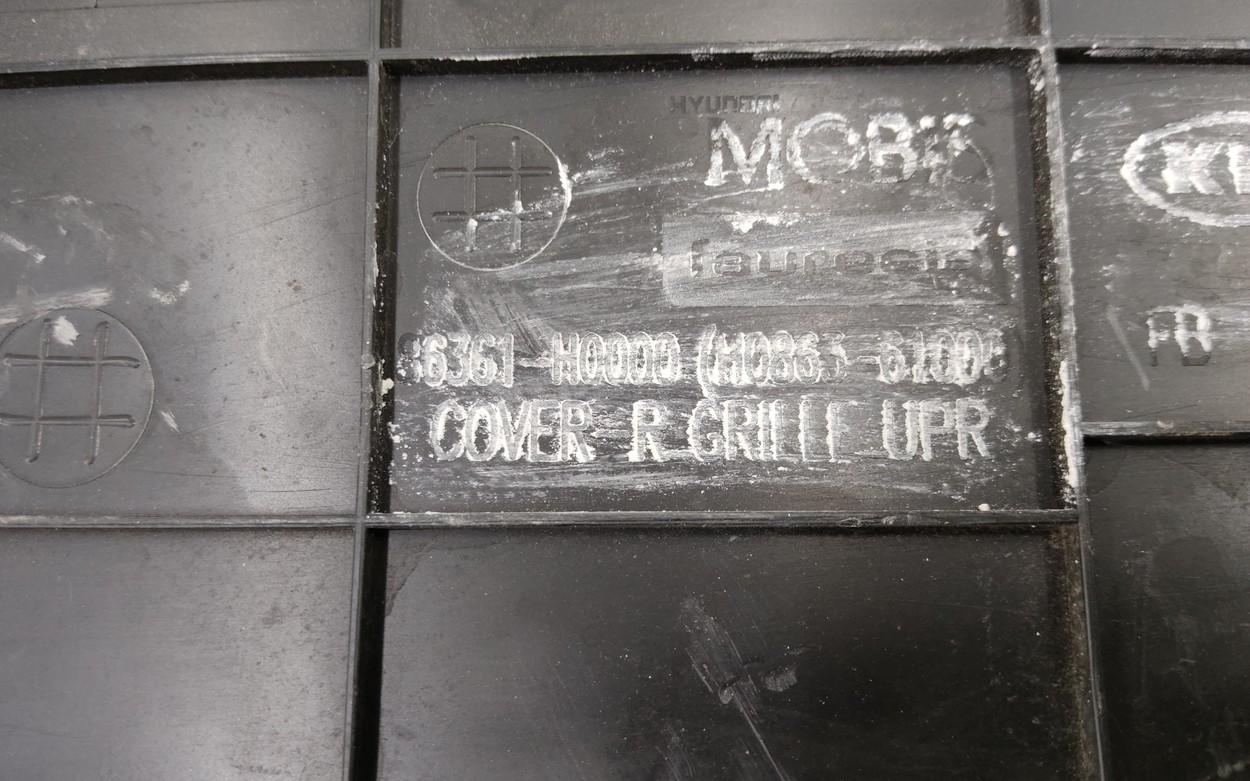 HYUNDAI
MOBIS
faurecia
86361-H0000 (H0863-61000
COVER R GRILLE UPR
FB